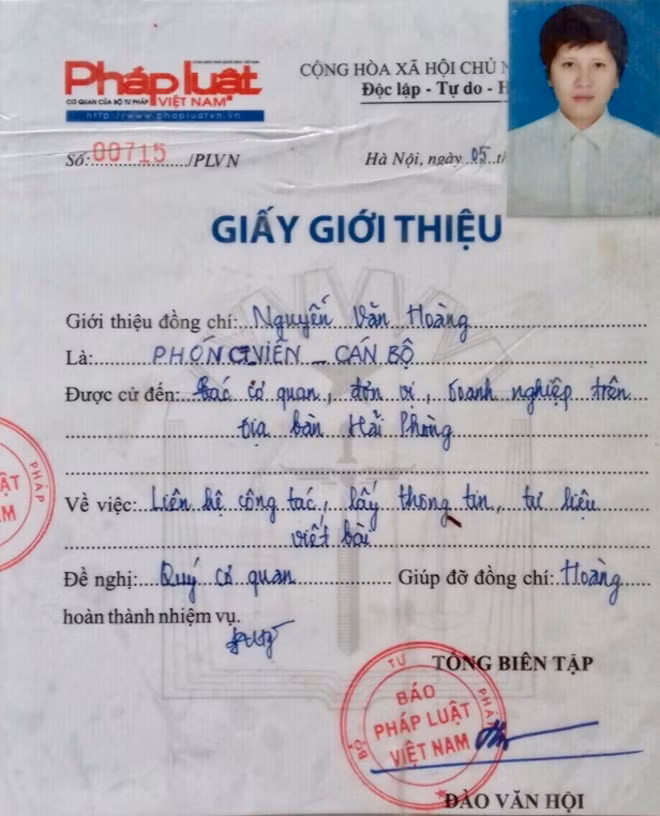 Pháp luật
CƠ QUAN CỦA BỘ TƯ PHÁP VIỆT NAM
http://www.phapluatvn.vn
CỘNG HÒA XÃ HỘI CHỦ N
Độc lập - Tự do - H
Số: 00715 /PLVN
Hà Nội, ngày 05 t
GIẤY GIỚI THIỆU
Giới thiệu đồng chí: Nguyễn Văn Hoàng
Là: PHÓNG VIÊN - CÁN BỘ
Được cử đến: Các cơ quan, đơn vị, doanh nghiệp trên
địa bàn Hải Phòng
Về việc: Liên hệ công tác, lấy thông tin, tư liệu
viết bài
Đề nghị: Quý cơ quan Giúp đỡ đồng chí: Hoàng
hoàn thành nhiệm vụ.
TỔNG BIÊN TẬP
BỘ TƯ PHÁP
BÁO
PHÁP LUẬT
VIỆT NAM
ĐÀO VĂN HỘI
PHÁP
ẬT
M